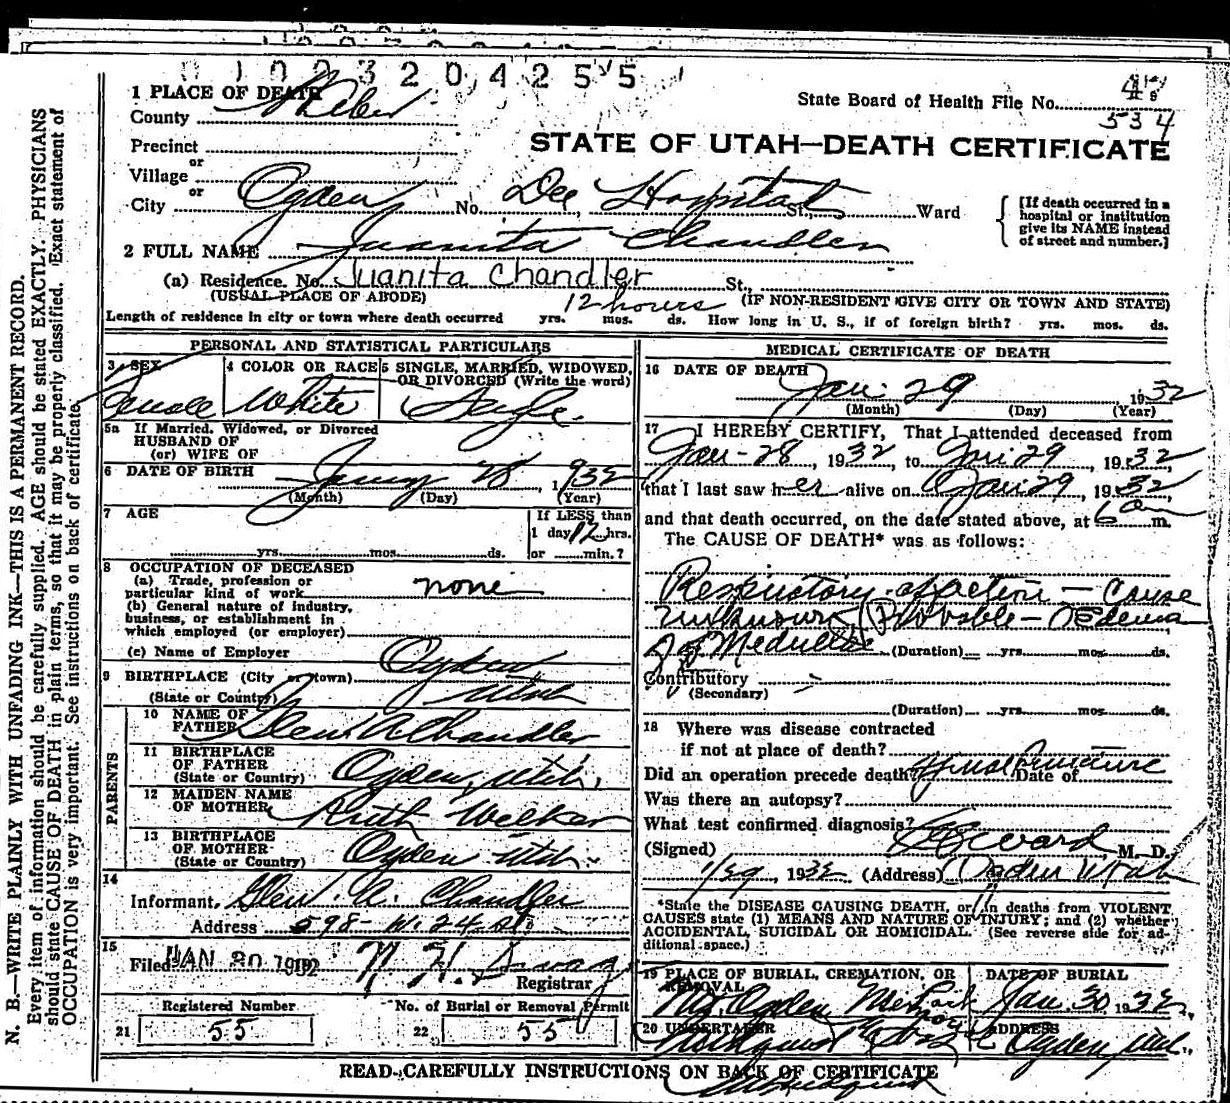 0 1 0 2 3 2 0 4 2 5 5
1 PLACE OF DEATH
County Weber
State Board of Health File No. 47
534
Precinct
or
Village
or
City Ogden No. Dee Hospital St., Ward
STATE OF UTAH—DEATH CERTIFICATE
[If death occurred in a
hospital or institution
give its NAME instead
of street and number.]
2 FULL NAME Juanita Chandler
(a) Residence. No. Juanita Chandler St.,
(USUAL PLACE OF ABODE) (IF NON-RESIDENT GIVE CITY OR TOWN AND STATE)
12 hours
Length of residence in city or town where death occurred yrs. mos. ds. How long in U. S., if of foreign birth? yrs. mos. ds.
PERSONAL AND STATISTICAL PARTICULARS
3 SEX
Female
4 COLOR OR RACE
White
5 SINGLE, MARRIED, WIDOWED,
OR DIVORCED (Write the word)
Single
5a If Married, Widowed, or Divorced
HUSBAND OF
(or) WIFE OF
6 DATE OF BIRTH 28, 1932
(Month) (Day) (Year)
7 AGE
yrs. mos. ds.
If LESS than
1 day 12 hrs.
or min.?
8 OCCUPATION OF DECEASED
(a) Trade, profession or
particular kind of work none
(b) General nature of industry,
business, or establishment in
which employed (or employer)
(c) Name of Employer
9 BIRTHPLACE (City or town) Ogden
(State or Country) Utah
PARENTS
10 NAME OF
FATHER Glen A Chandler
11 BIRTHPLACE
OF FATHER
(State or Country) Ogden, Utah.
12 MAIDEN NAME
OF MOTHER Ruth Welker
13 BIRTHPLACE
OF MOTHER
(State or Country) Ogden Utah
14
Informant, Glen A. Chandler
Address 598 - W. 24 St
15
Filed JAN 30 1932
Registrar
Registered Number No. of Burial or Removal Permit
21 55 22 55
MEDICAL CERTIFICATE OF DEATH
16 DATE OF DEATH
Jan 29 1932
(Month) (Day) (Year)
17 I HEREBY CERTIFY, That I attended deceased from
Jan - 28, 1932, to Jan 29 1932,
that I last saw her alive on Jan 29, 1932
and that death occurred, on the date stated above, at 6 am m.
The CAUSE OF DEATH* was as follows:
Respiratory affection - Cause
unknown (Probable - Oedema
of Medullae (Duration) yrs. mos. ds.
Contributory
(Secondary)
(Duration) yrs. mos. ds.
18 Where was disease contracted
if not at place of death?
Did an operation precede death? Date of
Was there an autopsy?
What test confirmed diagnosis?
(Signed) M. D.
1/29, 1932 (Address) Ogden Utah
*State the DISEASE CAUSING DEATH, or in deaths from VIOLENT
CAUSES state (1) MEANS AND NATURE OF INJURY; and (2) whether
ACCIDENTAL, SUICIDAL OR HOMICIDAL. (See reverse side for ad-
ditional space.)
19 PLACE OF BURIAL, CREMATION, OR
REMOVAL
DATE OF BURIAL
Jan. 30 1932,
20 UNDERTAKER
ADDRESS
Ogden, Utah.
READ CAREFULLY INSTRUCTIONS ON BACK OF CERTIFICATE
N. B.—WRITE PLAINLY WITH UNFADING INK—THIS IS A PERMANENT RECORD.
Every item of information should be carefully supplied. AGE should be stated EXACTLY. PHYSICIANS
should state CAUSE OF DEATH in plain terms, so that it may be properly classified. Exact statement of
OCCUPATION is very important. See instructions on back of certificate.